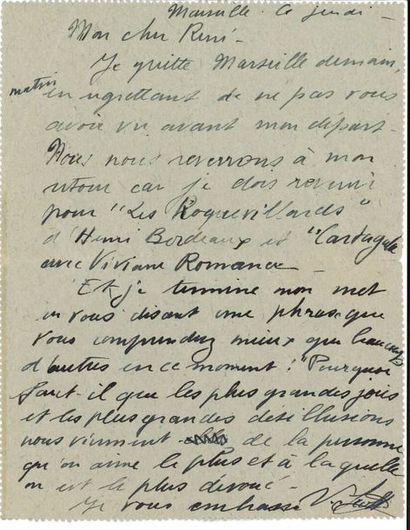 Marseille le jeudi -
Mon cher René -
Je quitte Marseille demain
matin
en regrettant de ne pas vous
avoir vu avant mon départ -
Nous nous reverrons à mon
retour car je dois revenir
pour "Les Roquevillards"
d'Henri Bordeaux et "Cartagale
avec Viviane Romance -
Et je termine mon mot
en vous disant une phrase que
vous comprendrez mieux que beaucoup
d'autres en ce moment : "Pourquoi
faut-il que les plus grandes joies
et les plus grandes desillusions
nous viennent de la personne
qu'on aime le plus et à laquelle
on est le plus dévoué -
Je vous embrasse